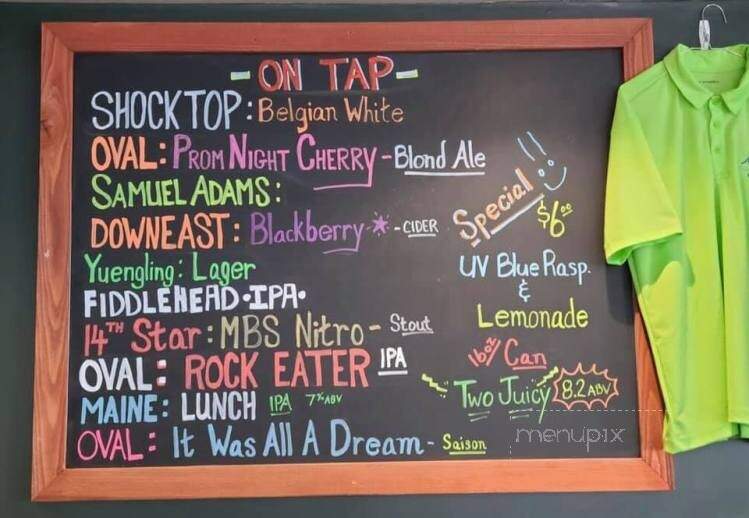 - ON TAP -
SHOCKTOP: Belgian White
OVAL: PROM NIGHT CHERRY - Blond Ale
SAMUEL ADAMS:
DOWNEAST: Blackberry * - CIDER
Yuengling: Lager
FIDDLEHEAD • IPA •
14TH Star: MBS Nitro - Stout
OVAL: ROCK EATER IPA
MAINE: LUNCH IPA 7% ABV
OVAL: It Was All A Dream - Saison
Special!!
$6.00
UV Blue Rasp.
&
Lemonade
16oz Can
Two Juicy 8.2 ABV
menupix